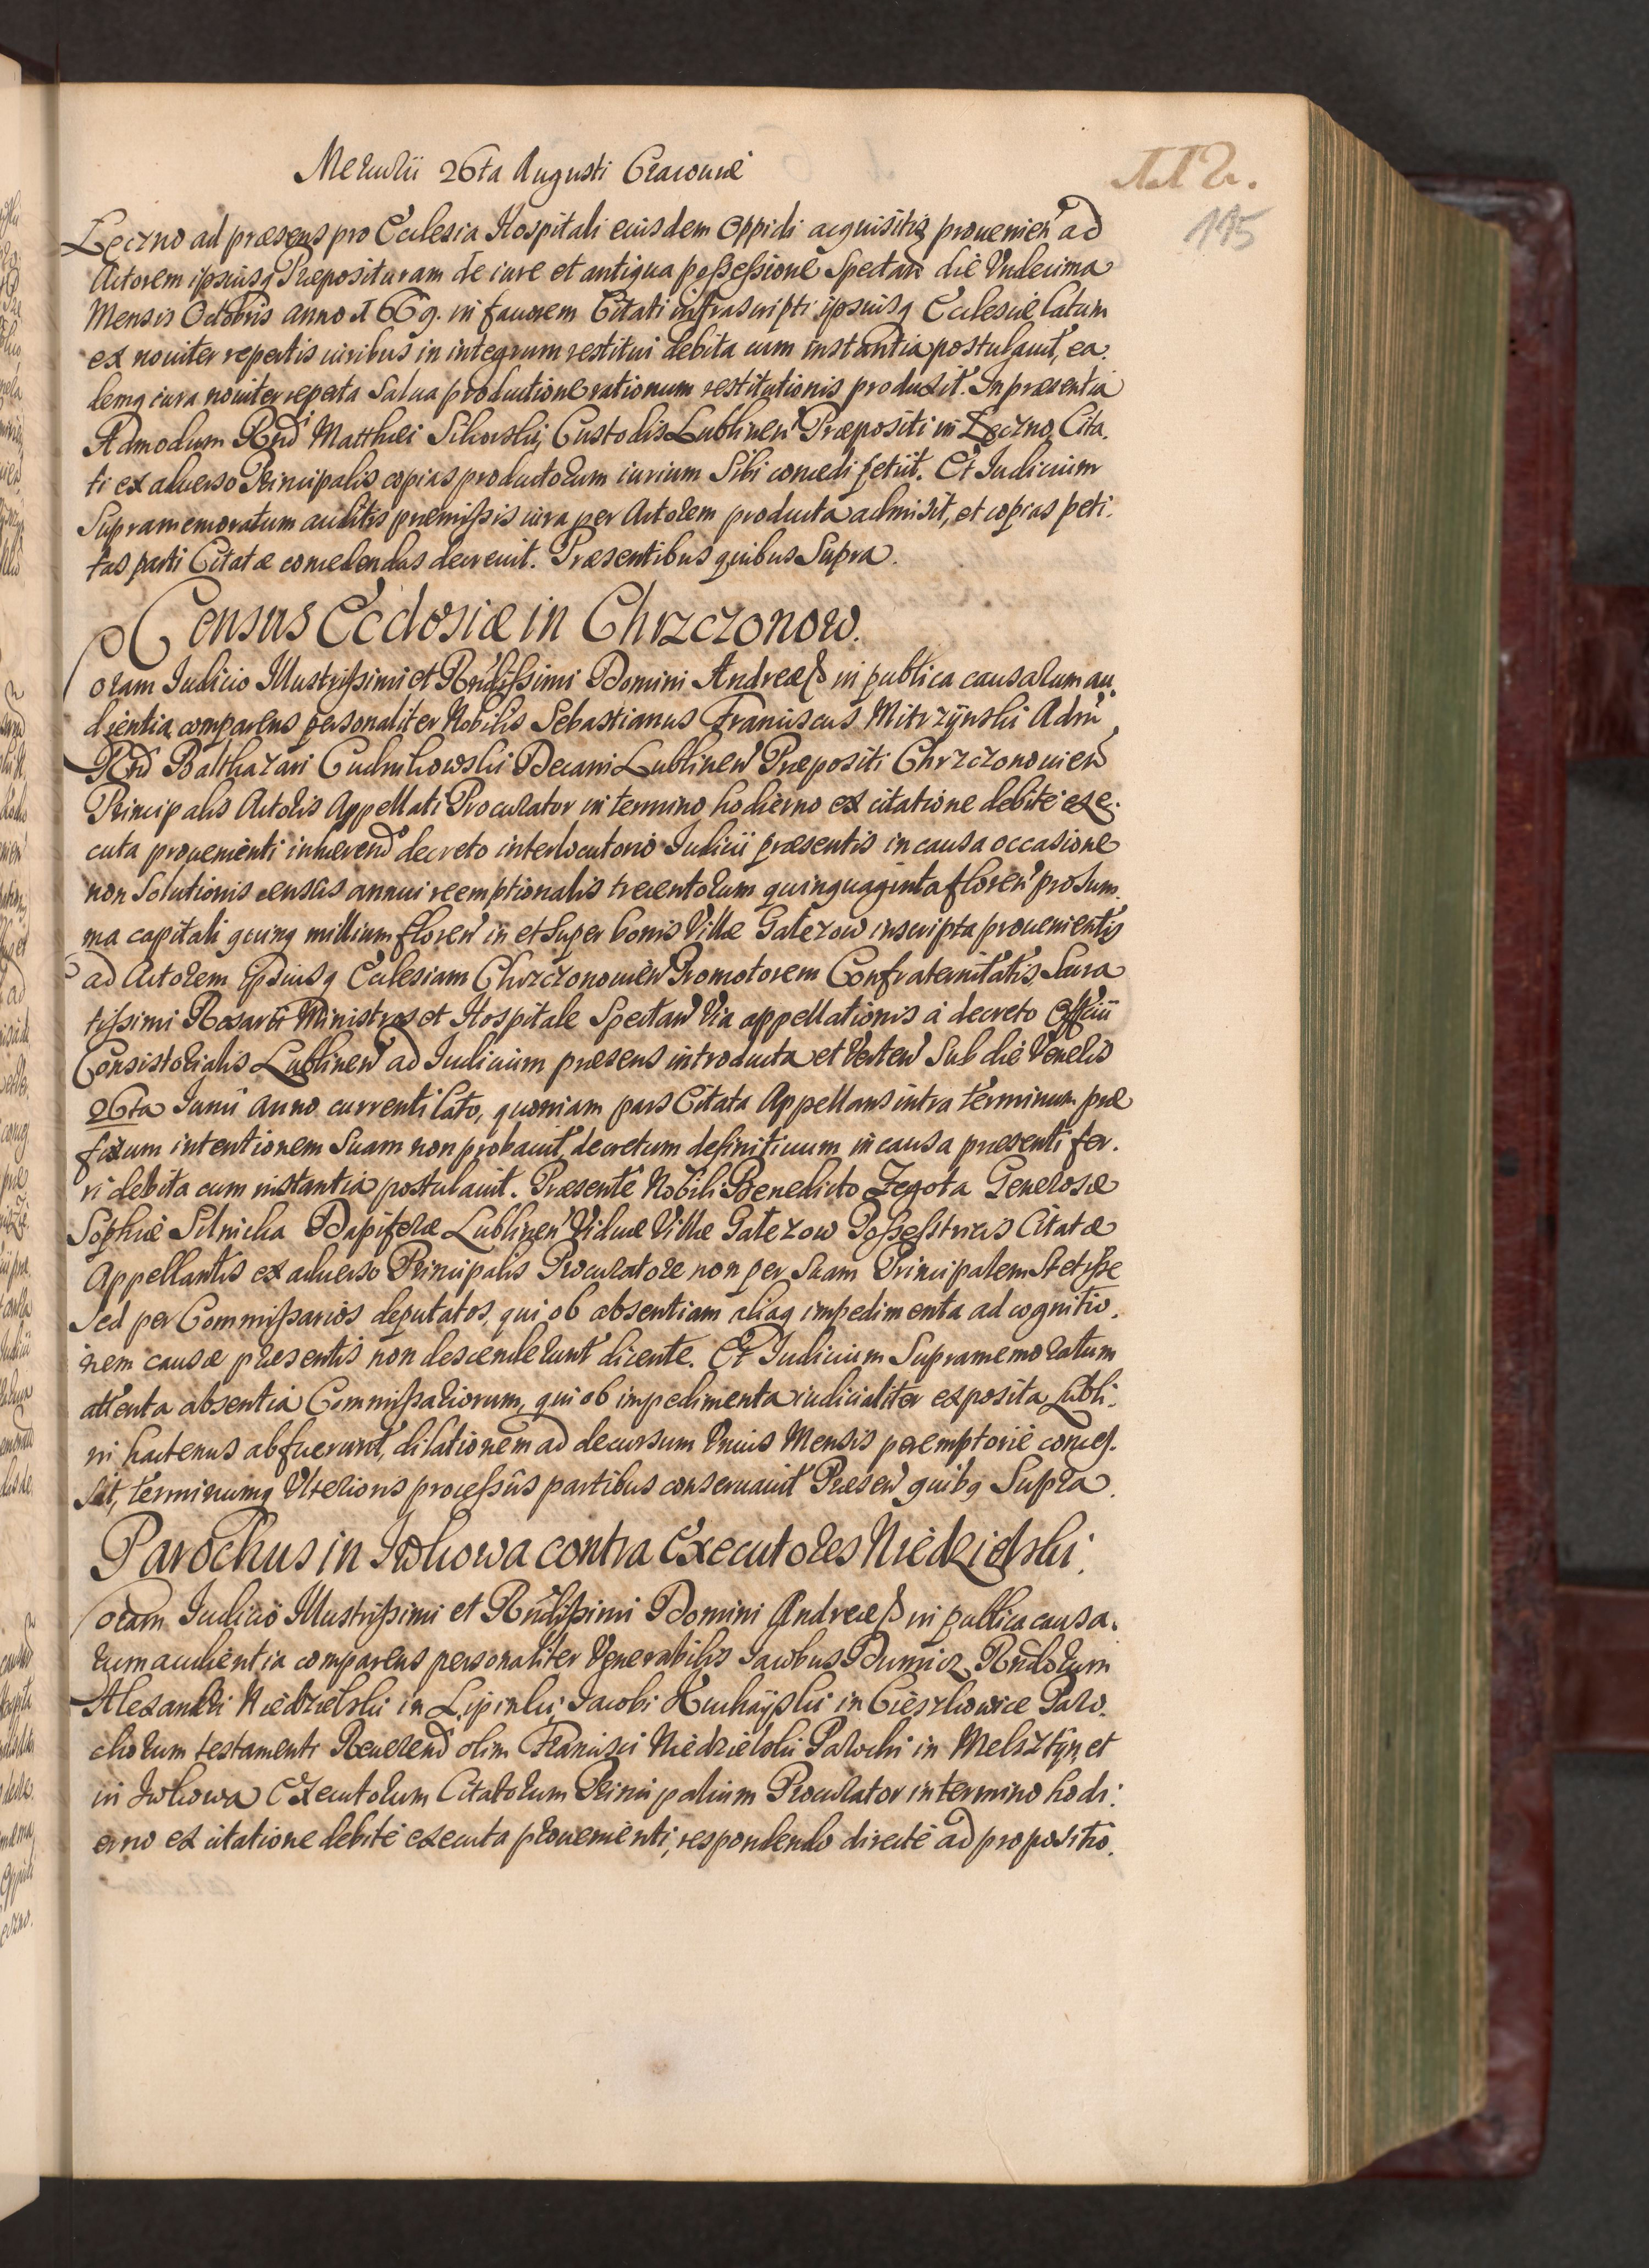 Mercurii 26ta Augusti Cracoviæ
112.
115
Łeczno ad præsens pro Ecclesia Hospitali eiusdem Oppidi acquisitis prouenień ad
Actorem ipsiusq Præposituram de iure et antiqua possessione Spectań die Vndecima
Mensis Octobris anno 1669. in fauorem Citati infrascripti ipsiusq Ecclesiæ latum
ex nouiter repertis iuribus in integrum restitui debita cum instantia postulauit, ea.
demq iura nouiter reperta Salua productione rationum restitutionis produxit. In præsentia
Admodum Rńd Matthæi Sikorski Custodis Lublineń Præpositi in Łeczno Cita.
ti ex aduerso Principalis copias productorum iurium Sibi concedi petiit. Et Iudicium
Supramemoratum auditis præmissis iura per Actorem producta admisit, et copias peti.
tas parti Citatæ concedendas decreuit. Præsentibus quibus Supra.
Census Ecclesiæ in Chrzczonow.
Coram Iudicio Illustrissimi et Rńdissimi Domini Andreæ ß in publica causarum au.
dientia comparens personaliter Nobilis Sebastianus Franciscus Mitrzÿnski Adm̃
Rńd Balthazari Cudnikowski Decani Lublineń Præpositi Chrzczonouień
Principalis Actoris Appellati Procurator in termino hodierno ex citatione debite exe.
cuta prouenienti inhærend decreto interlocutorio Iudicii præsentis in causa occasione
non Solutionis census annui reemptionalis trecentorum quinquaginta floreń pro Sum.
ma capitali quinq millium floreń in et Super bonis Villæ Gałezow inscripta prouenientis
ad Actorem Ipsiusq Ecclesiam Chrzczonouień Promotorem Confraternitatis Sacra
tissimi Rosarii Ministros et Hospitale Spectań Via appellationis a decreto Officii
Consistorialis Lublineń ad Iudicium præsens introducta et Verteń Sub die Veneris
26ta Iunii anno currenti lato, quoniam pars Citata Appellans intra terminum præ
fixum intentionem Suam non probauit, decretum definitiuum in causa præsenti fer.
ri debita cum instantia postulauit. Præsente Nobili Benedicto Zegota Generosæ
Sophiæ Silnicka Dapiferæ Lublineń Viduæ Villæ Gałezow Possesstricis Citatæ
Appellantis ex aduerso Principalis Procuratore non per Suam Principalem Stetisse
Sed per Commissarios deputatos, qui ob absentiam aliaq impedimenta ad cognitio.
nem causæ præsentis non descenderunt dicente. Et Iudicium Supramemoratum
attenta absentia Commissariorum, qui ob impedimenta iudicialiter exposita Lubli.
ni hactenus abfuerunt, dilationem ad decursum Vnius Mensis peremptorie conces.
Sit, terminumq Vlterioris processus partibus conseruauit Præseń quibq Supra.
Parochus in Iwkowa contra Executores Niedzielski.
Coram Iudicio Illustrissimi et Rńdissimi Domini Andreæ ß in publica causa.
rum audientia comparens personaliter Venerabilis Iacobus Dumicz Rńdorum
Alexandri Niedzielski in Lipinki, Iacobi Kucháÿski in Cieszkowice Paro.
chorum testamenti Reuerend olim Francisci Niedzielski Parochi in Melsztÿn, et
in Iwkowa Executorum Citatorum Principalium Procurator in termino hodi.
erno ex citatione debite executa prouenienti, respondendo directe ad propositio.